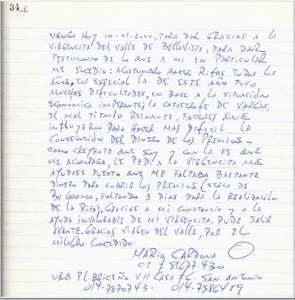 34.
VENGO HOY 10-01-2000, PARA DAR GRACIAS A LA
VIRGENCITA DEL VALLE DE BELLAVISTA, PARA DAR
TESTIMONIO DE LO QUE A MI EN PARTICULAR
ME SUCEDIO: ACOSTUMBRO HACER RIFAS TODOS LOS
AÑOS, EN ESPECIAL LA DE ESTE AÑO TUVO
MUCHAS DIFICULTADES, EN BASE A LA SITUACIÓN
ECONOMICA IMPERANTE, LA CATASTROFE DE VARGAS,
EL MAL TIEMPO REINANTE, FACTORES QUE
INFLUYERON PARA HACER MAS DIFICIL LA
CONSECUCIÓN DEL DINERO DE LOS PREMIOS
COMO CREYENTE QUE SOY CON LA FE QUE
ME ACOMPAÑA, LE PEDI A LA VIRGENCITA ME
AYUDASE PUESTO QUE ME FALTABA BASTANTE
DINERO PARA CUBRIR LOS PREMIOS (CERCA DE
BS 600000, FALTANDO 3 DIAS PARA LA REALIZACIÓN
DE LA RIFA). GRACIAS A MI CONSTANCIA Y A LA
AYUDA INVALORABLE DE MI VIRGENCITA, PUDE SALIR
AVANTE. GRACIAS VIRGEN DEL VALLE, POR EL
MILAGRO CONCEDIDO.
MARIO CARDONA
URB PL BRICEÑO VII CASA SAN ANTONIO
014-7870743- 014-